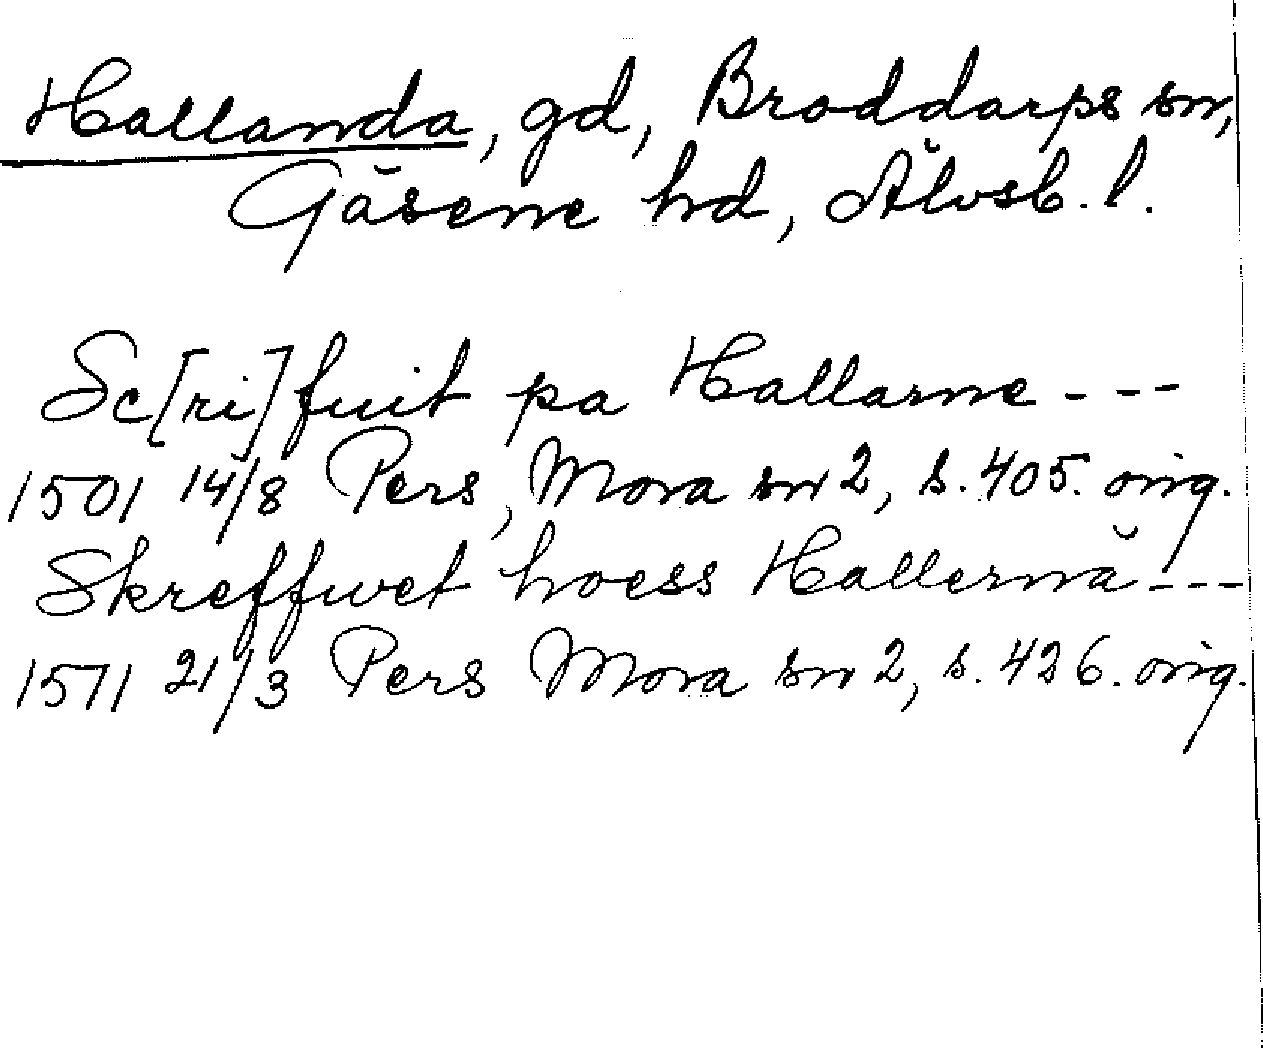 Hallanda, gd, Broddarps sn,
Gäsene hd, Älvsb. l.
Sc[ri]fuit pa Hallarne ---
1501 14/8 Pers, Mora sn 2, s. 405. orig.
Skreffwet hoess Hallernä ---
1571 21/3 Pers Mora sn 2, s. 426. orig.